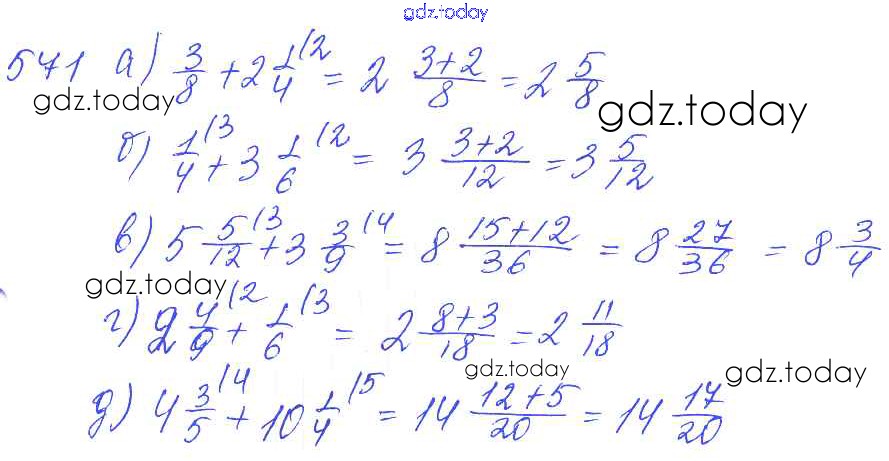 gdz.today
571 а) 3/8 + 2 1/4 \2 = 2 (3+2)/8 = 2 5/8
gdz.today
gdz.today
б) 1/4 \3 + 3 1/6 \2 = 3 (3+2)/12 = 3 5/12
в) 5 5/12 \3 + 3 3/9 \4 = 8 (15+12)/36 = 8 27/36 = 8 3/4
gdz.today
г) 2 4/9 \2 + 1/6 \3 = 2 (8+3)/18 = 2 11/18
gdz.today
gdz.today
д) 4 3/5 \4 + 10 1/4 \5 = 14 (12+5)/20 = 14 17/20